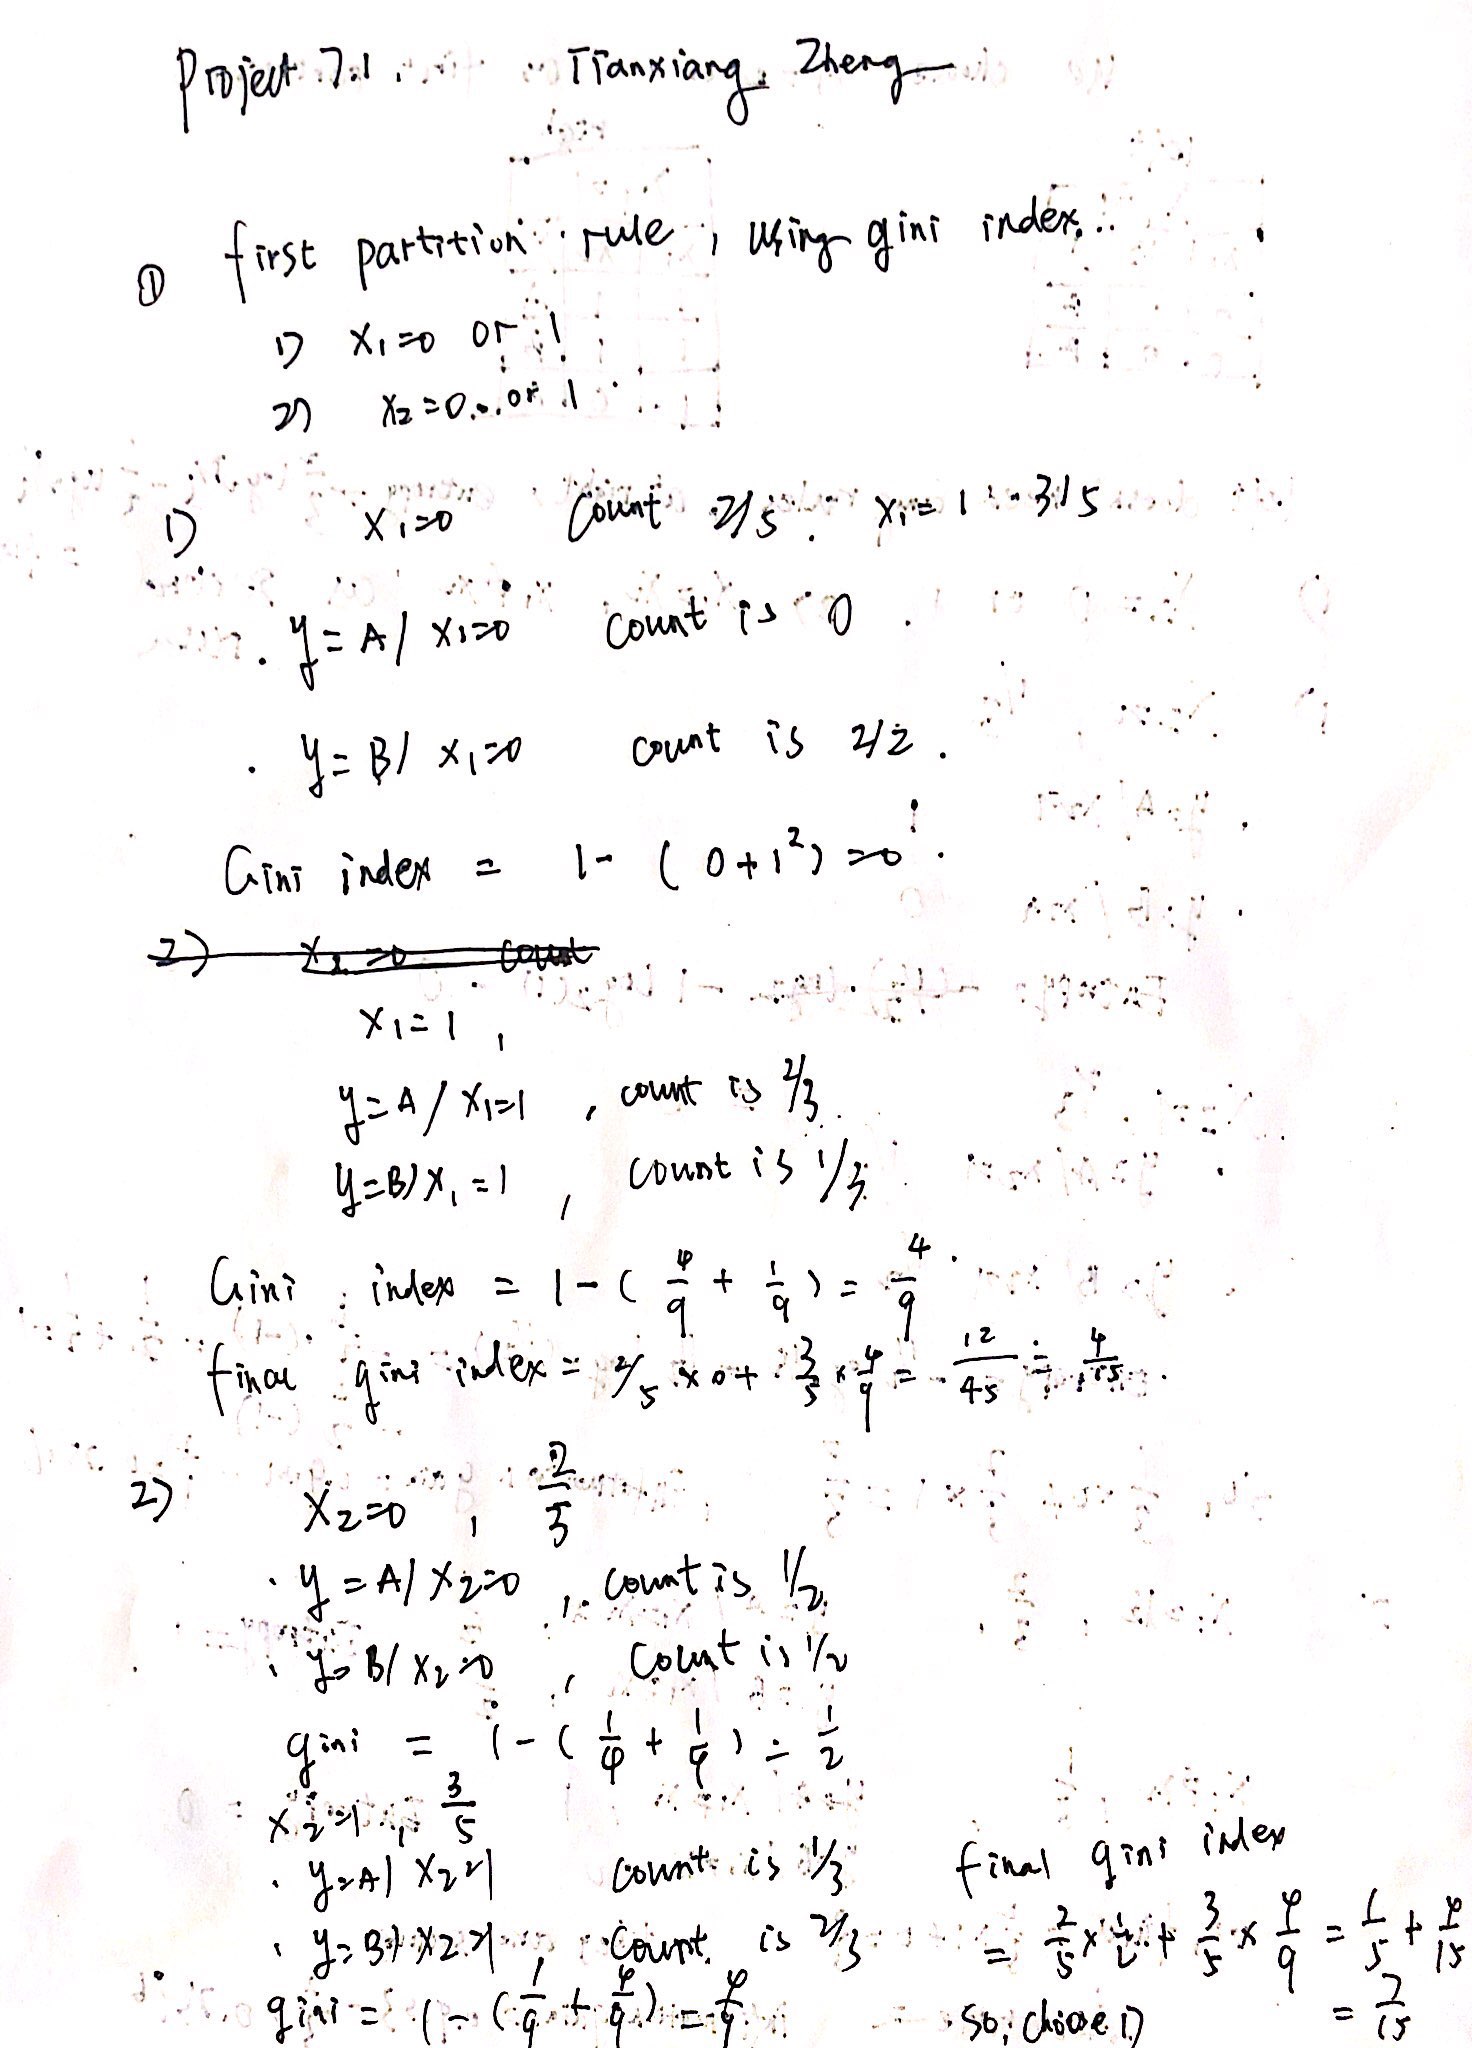 Project 7.1. Tianxiang Zheng
① first partition rule, using gini index.
1) x₁=0 or 1
2) x₂=0 or 1
1) x₁=0 count 2/5. x₁=1 3/5
y=A/x₁=0 count is 0.
y=B/x₁=0 count is 2/2.
Gini index = 1-(0+1²)=0.
2) x₂=0 count
x₁=1,
y=A/x₁=1, count is 2/3
y=B/x₁=1, count is 1/3
Gini index = 1-(4/9+1/9)=4/9
final gini index = 2/5×0+3/5×4/9=12/45=4/15.
2) x₂=0, 2/5
y=A/x₂=0, count is 1/2
y=B/x₂=0, count is 1/2
gini = 1-(1/4+1/4)=1/2
x₂=1, 3/5
y=A|x₂=1 count is 1/3
y=B|x₂=1, count is 2/3
gini = 1-(1/9+4/9)=4/9
final gini index
= 2/5×1/2+3/5×4/9=1/5+4/15
=7/15
so, choose 1)